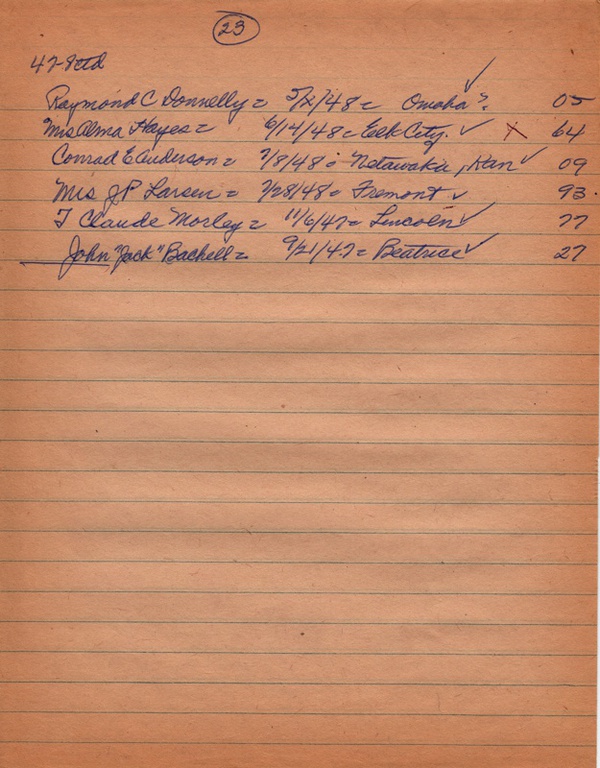 23
47-8ctd
Raymond C Donnelly = 5/2/48 = Omaha ?. 05
Mrs Alma Hayes = 6/14/48 = Elk City. ✓ X 64
Conrad E Anderson = 7/8/48 = Netawaka, Kan ✓ 09
Mrs J P Larsen = 7/28/48 = Fremont ✓ 93.
T Claude Morley = 11/6/47 = Lincoln ✓ 77
John "Jack" Bachell = 9/21/47 = Beatrice ✓ 27